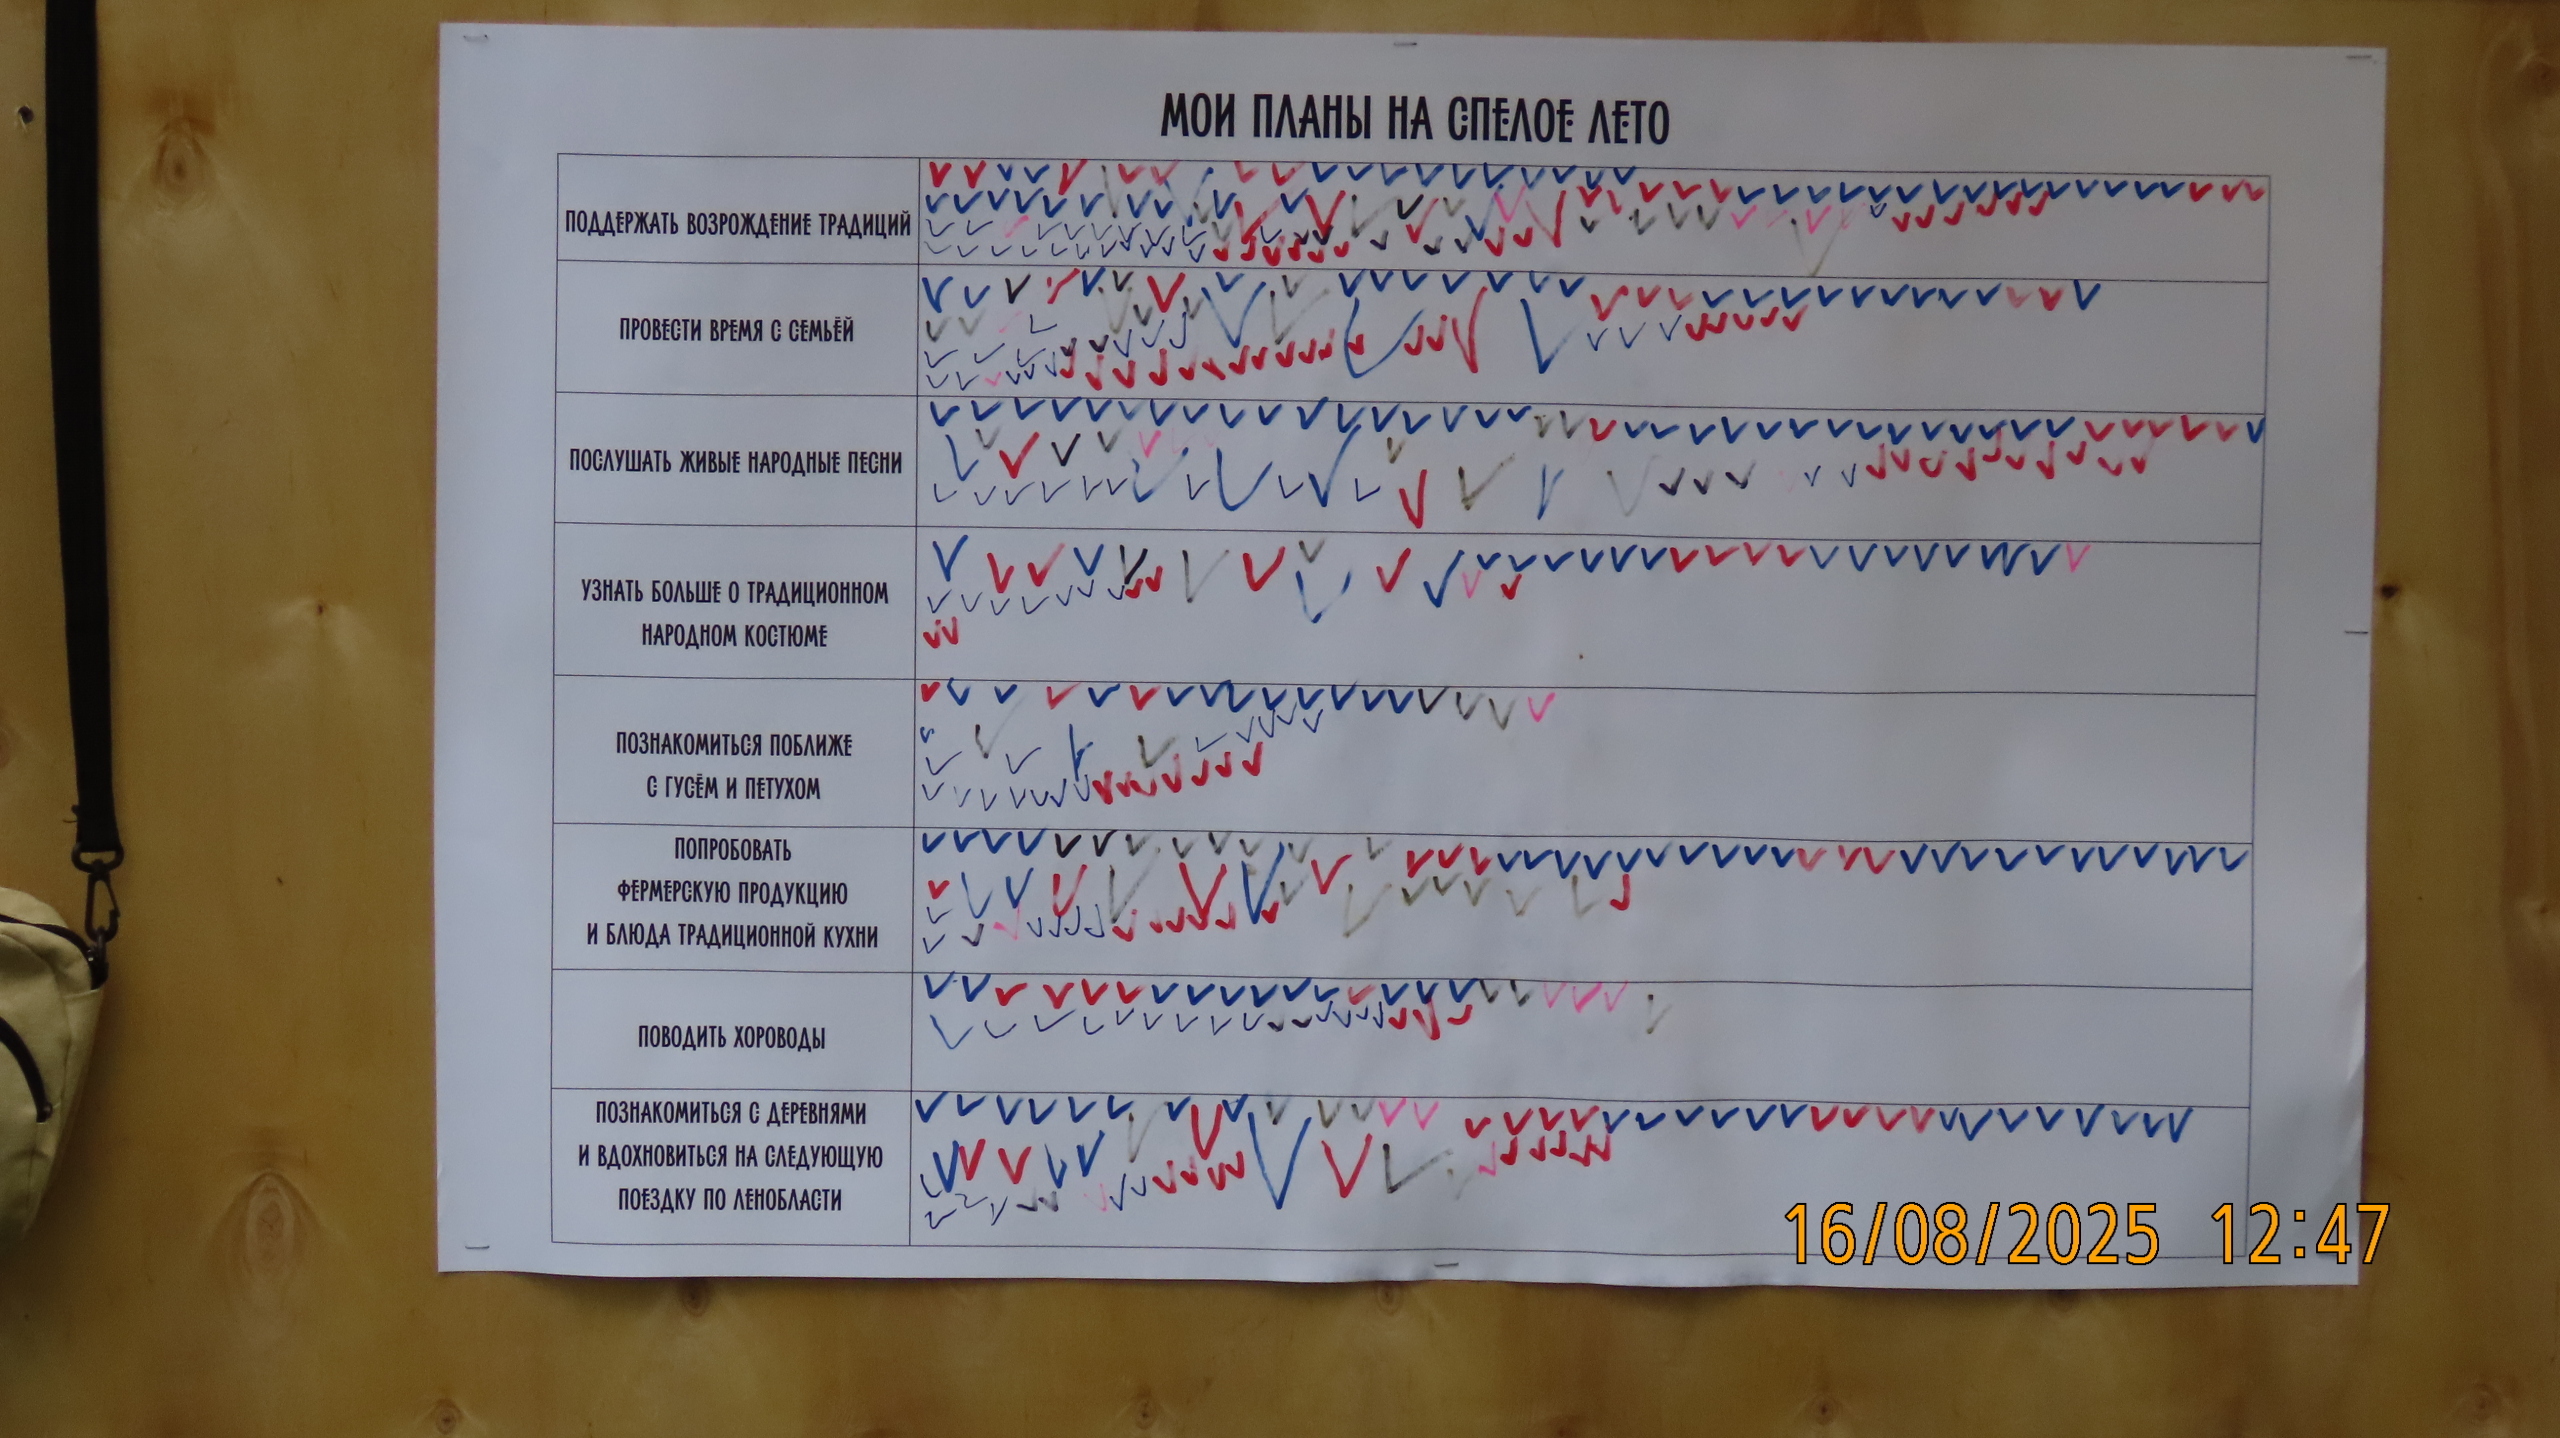 МОИ ПЛАНЫ НА СПЕЛОЕ ЛЕТО
ПОДДЕРЖАТЬ ВОЗРОЖДЕНИЕ ТРАДИЦИЙ
ПРОВЕСТИ ВРЕМЯ С СЕМЬЁЙ
ПОСЛУШАТЬ ЖИВЫЕ НАРОДНЫЕ ПЕСНИ
УЗНАТЬ БОЛЬШЕ О ТРАДИЦИОННОМ
НАРОДНОМ КОСТЮМЕ
ПОЗНАКОМИТЬСЯ ПОБЛИЖЕ
С ГУСЁМ И ПЕТУХОМ
ПОПРОБОВАТЬ
ФЕРМЕРСКУЮ ПРОДУКЦИЮ
И БЛЮДА ТРАДИЦИОННОЙ КУХНИ
ПОВОДИТЬ ХОРОВОДЫ
ПОЗНАКОМИТЬСЯ С ДЕРЕВНЯМИ
И ВДОХНОВИТЬСЯ НА СЛЕДУЮЩУЮ
ПОЕЗДКУ ПО ЛЕНОБЛАСТИ
16/08/2025 12:47